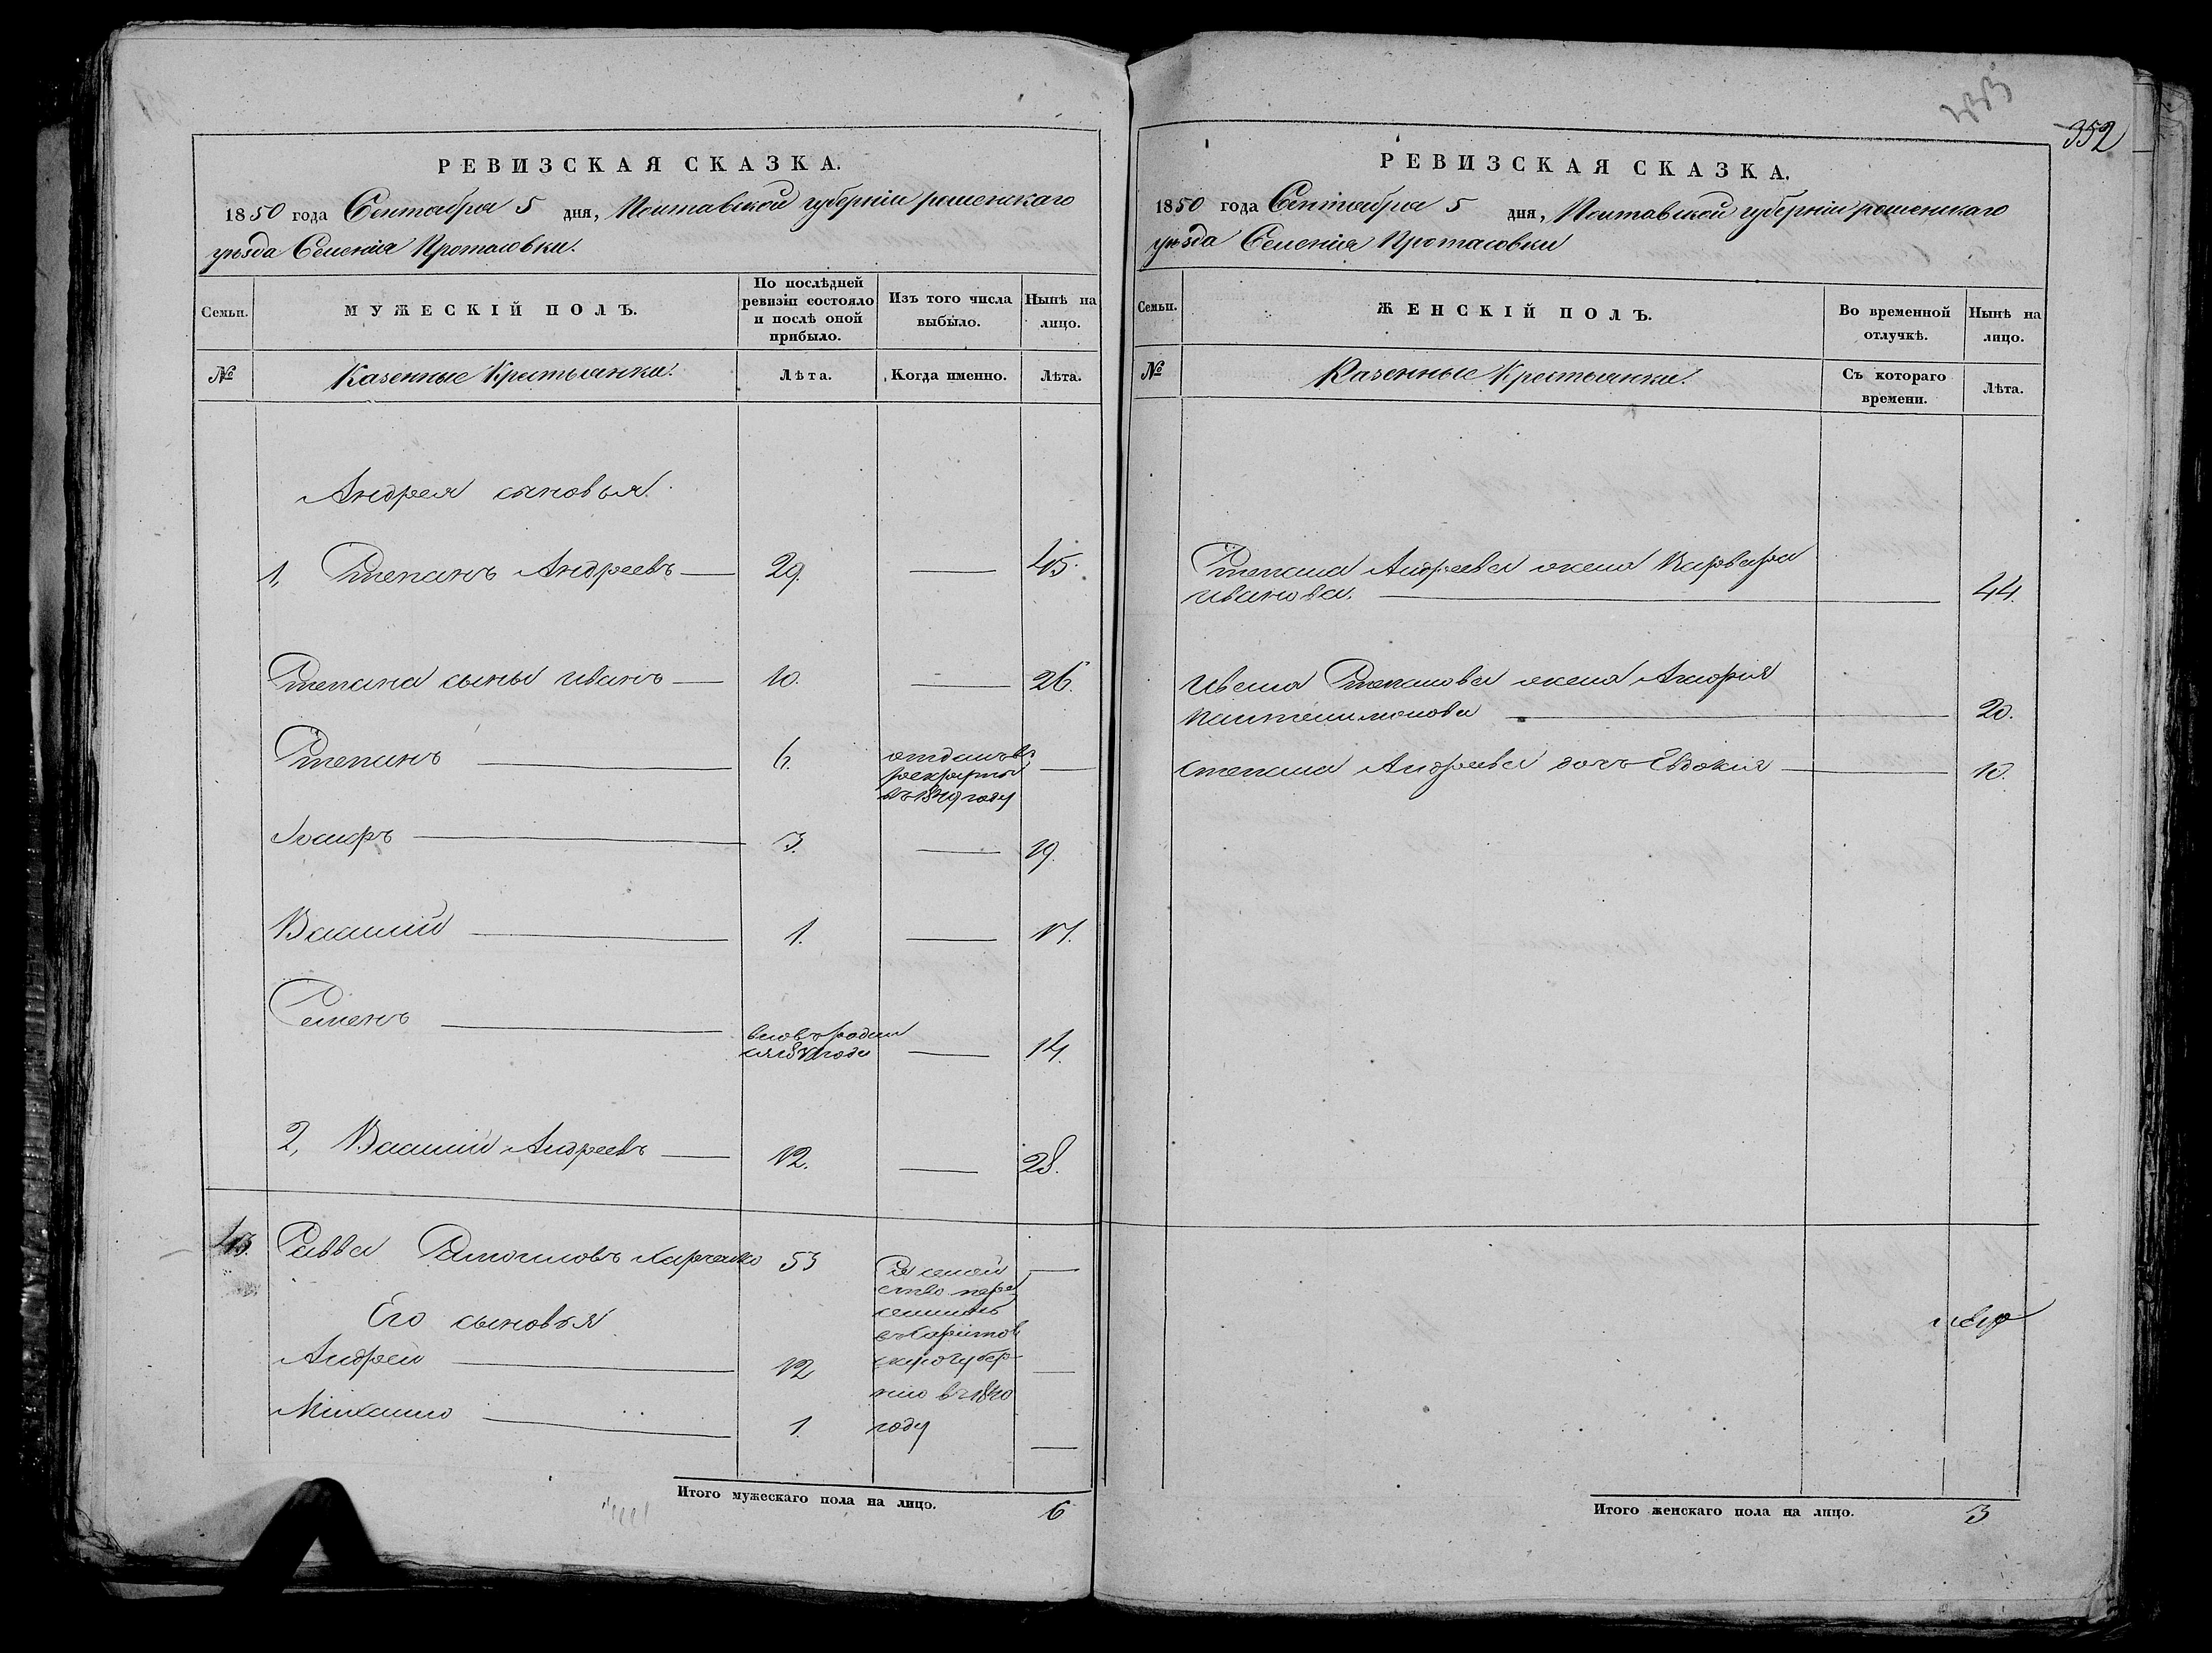 РЕВИЗСКАЯ СКАЗКА.
1850 года Сентября 5 дня, Полтавской губерніи роменскаго
уѣзда Селенія Протасовки.
Семьи.
МУЖЕСКІЙ ПОЛЪ.
По послѣдней
ревизіи состояло
и послѣ оной
прибыло.
Изъ того числа
выбыло.
Нынѣ на
лицо.
№
Казенные Крестьянки.
Лѣта.
Когда именно.
Лѣта.
Андрея сыновья.
1, Степанъ Андреевъ 29. 45.
Степана сыны Иванъ 10. 26.
Степанъ 6. отданъ въ
рекруты
въ 1849 году
Іосифъ 3. 19.
Василій 1. 17.
Семенъ
вновь родил
ся 18 года 14.
2, Василій Андреевъ 12. 28.
43. Савва Самойловъ Харченко 53
Его сыновья
Андрей 12
Михайло 1.
семей
ство пере
селилось
губер
нію въ 1840
году
Итого мужескаго пола на лицо. 6
352
РЕВИЗСКАЯ СКАЗКА.
1850 года Сентября 5 дня, Полтавской губерніи роменскаго
уѣзда Селенія Протасовки
Семьи.
ЖЕНСКІЙ ПОЛЪ.
Во временной
отлучкѣ.
Нынѣ на
лицо.
№
Казенные Крестьянки.
Съ котораго
времени.
Лѣта.
Степана Андреева жена Варвара
Иванова. 44.
Ивана Степанова жена
Пантелимонова 20.
Степана Андреева дочь Евдокія 10.
Итого женскаго пола на лицо. 3